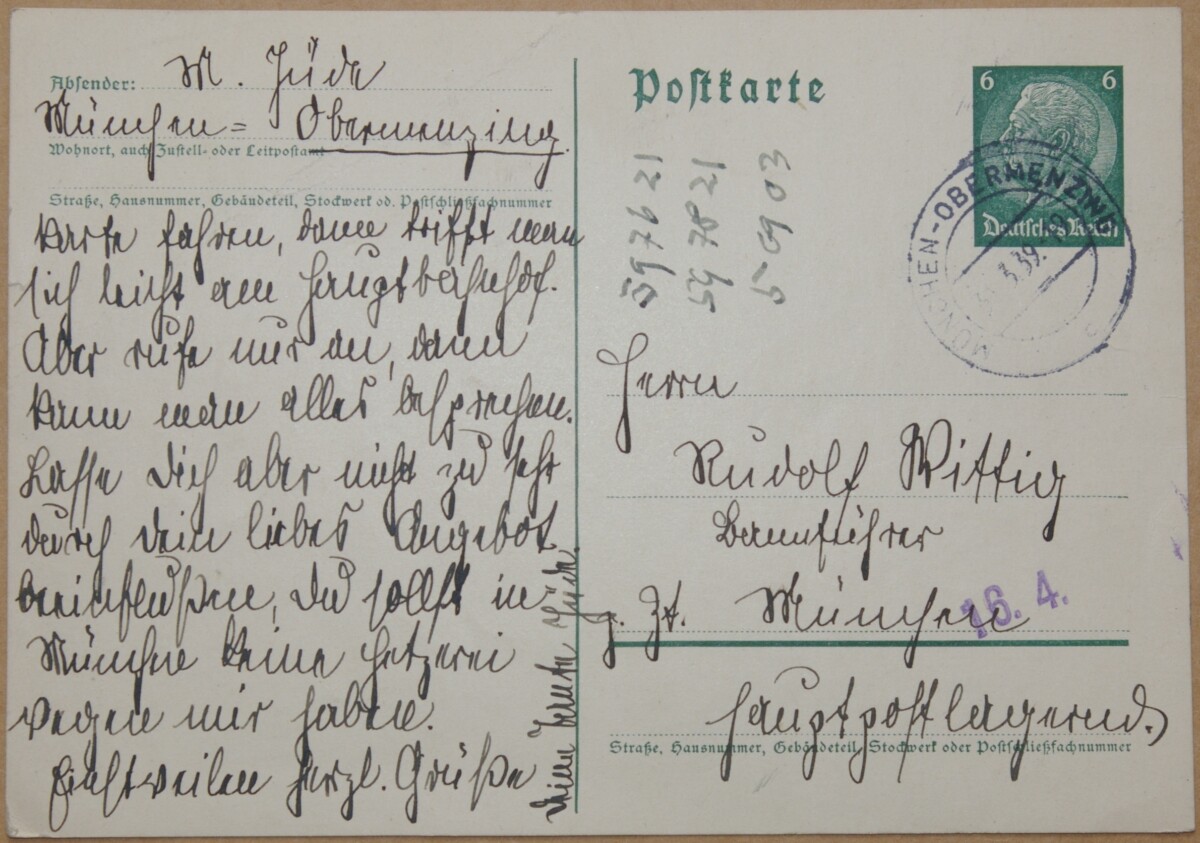 Absender: M. Jüde
München = Obermenzing.
Wohnort, auch Zustell- oder Leitpostamt
Straße, Hausnummer, Gebäudeteil, Stockwerk od. Postschließfachnummer
Karte fahren, dann trifft man
sich leicht am Hauptbahnhof.
Aber rufe nur an, dann
kann man alles besprechen.
Lasse Dich aber nicht zu sehr
durch dein liebes Angebot
beeinflußen, Du sollst in
München keine Hetzerei
wegen mir haben.
Einstweilen herzl. Grüße
Deine Jüde.
Postkarte
6 6
Deutsches Reich
MÜNCHEN-OBERMENZING
59 76 21
59 78 21
5 09 03
Herrn
Rudolf Wittig
Bannführer
z. Zt. München
16. 4.
hauptpostlagernd.)
Straße, Hausnummer, Gebäudeteil, Stockwerk oder Postschließfachnummer